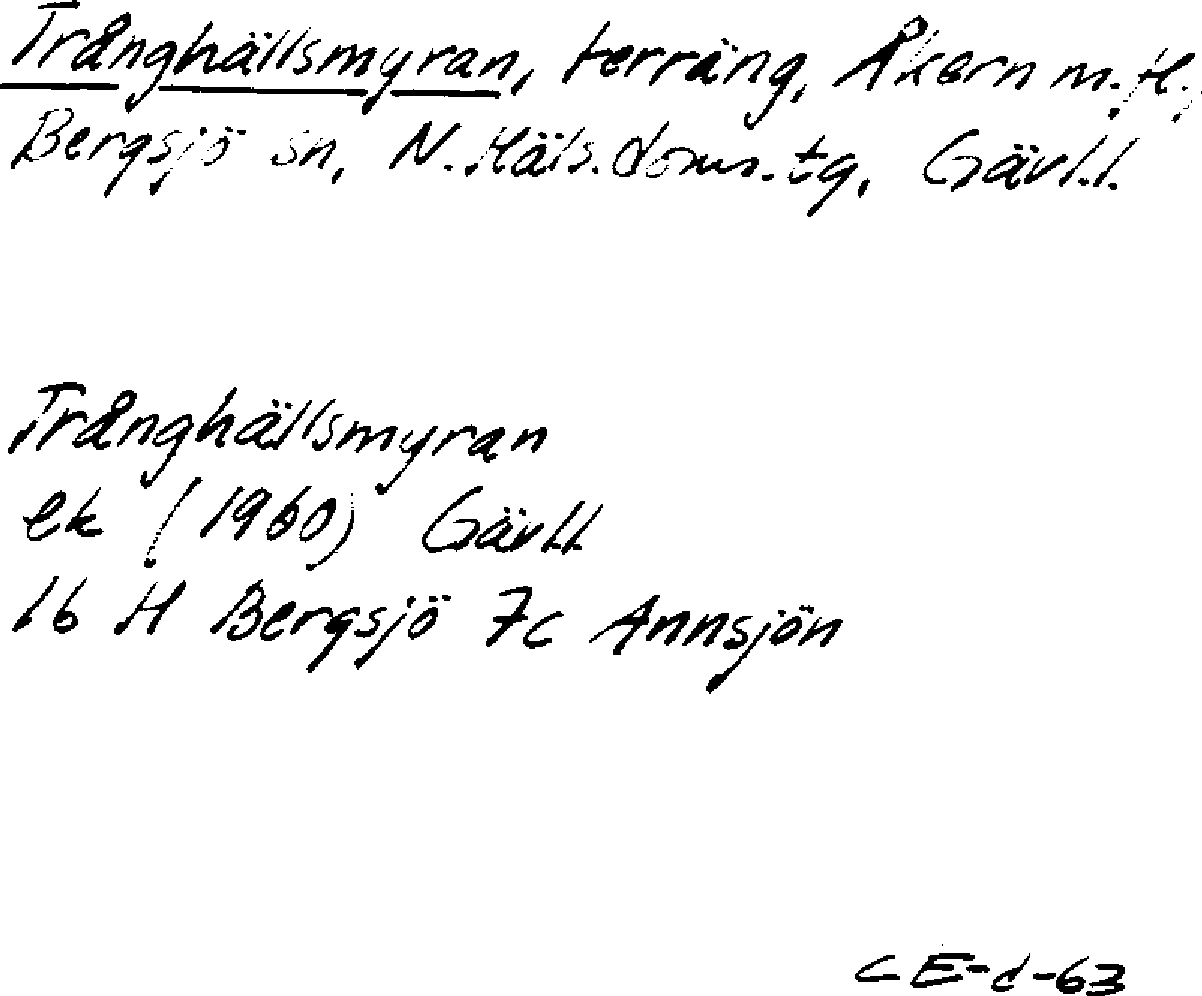 Trånghällsmyran, terräng, Åkern m.fl.,
Bergsjö sn, N. Häls. doms. tg, Gävl.l.
Trånghällsmyran
ek (1960) Gävl.l.
16 H Bergsjö 7c Annsjön
CE-d-63